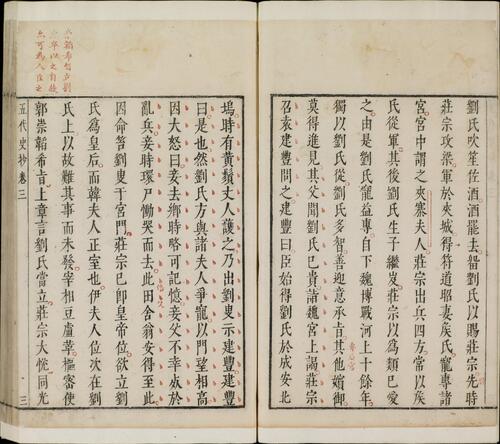 劉氏吹笙佐酒酒罷去留劉氏以賜莊宗先時
莊宗攻梁軍於夾城得符道昭妻矦氏寵專諸
宮宮中謂之夾寨夫人莊宗出兵四方常以矦
氏從軍其後劉氏生子繼岌莊宗以爲類已愛
之由是劉氏寵益專自下魏博戰河上十餘年
獨以劉氏從劉氏多智善迎意承旨其他嬪御
莫得進見其父聞劉氏已貴詣魏宮上謁莊宗
召袁建豐問之建豐曰臣始得劉氏於成安北
塢時有黃鬚丈人護之乃出劉叟示建豐建豐
曰是也然劉氏方與諸夫人爭寵以門望相高
因大怒曰妾去鄉時略可記憶妾父不幸死於
亂兵妾時環尸慟哭而去此田舍翁安得至此
因命笞劉叟于宮門莊宗已卽皇帝位欲立劉
氏爲皇后而韓夫人正室也伊夫人位次在劉
氏上以故難其事而未發宰相豆盧革樞密使
郭崇韜希旨上章言劉氏當立莊宗大悅同光
五代史抄卷三 三